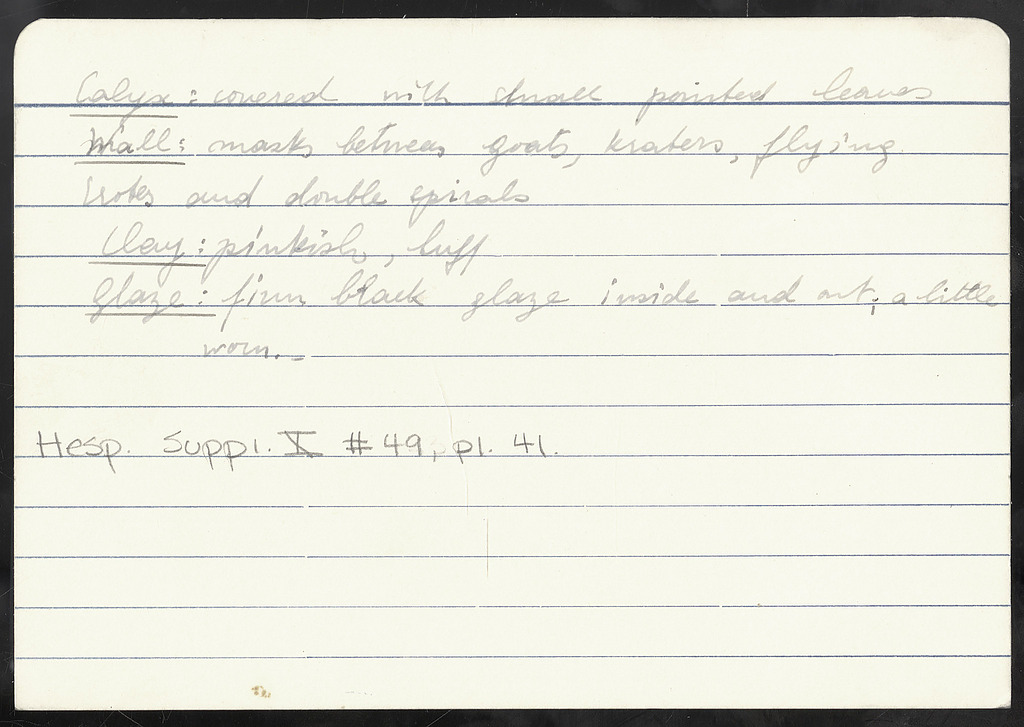 Calyx: covered with small pointed leaves
Wall: masks between goats, kraters, flying
Erotes and double spirals
Clay: pinkish, buff
Glaze: firm black glaze inside and out; a little
worn.
Hesp. Suppl. X #49, pl. 41.